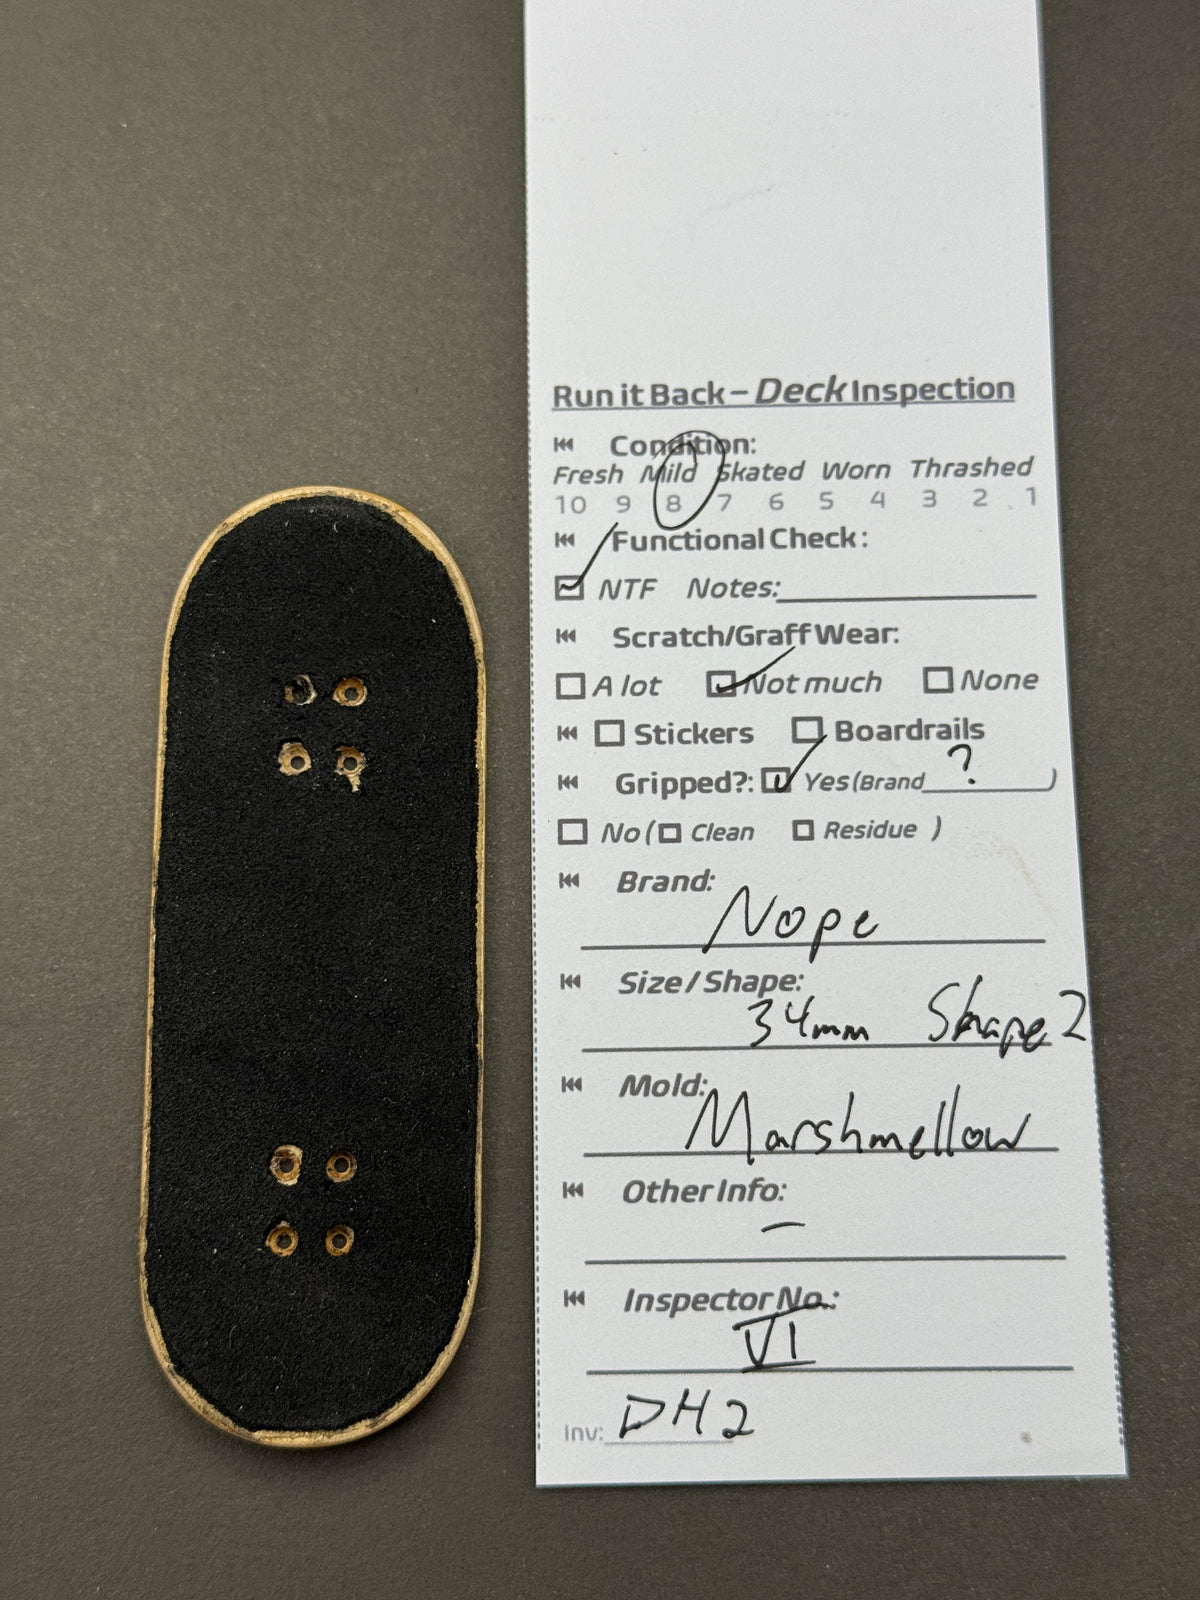 Run it Back – Deck Inspection
Condition:
Fresh Mild Skated Worn Thrashed
10 9 8 7 6 5 4 3 2 1
Functional Check:
NTF Notes:
Scratch/Graff Wear:
A lot Not much None
Stickers Boardrails
Gripped?: Yes (Brand ? )
No ( Clean Residue )
Brand:
Nope
Size / Shape:
34mm Shape 2
Mold:
Marshmellow
Other Info:
–
Inspector No.:
VI
Inv: DH2